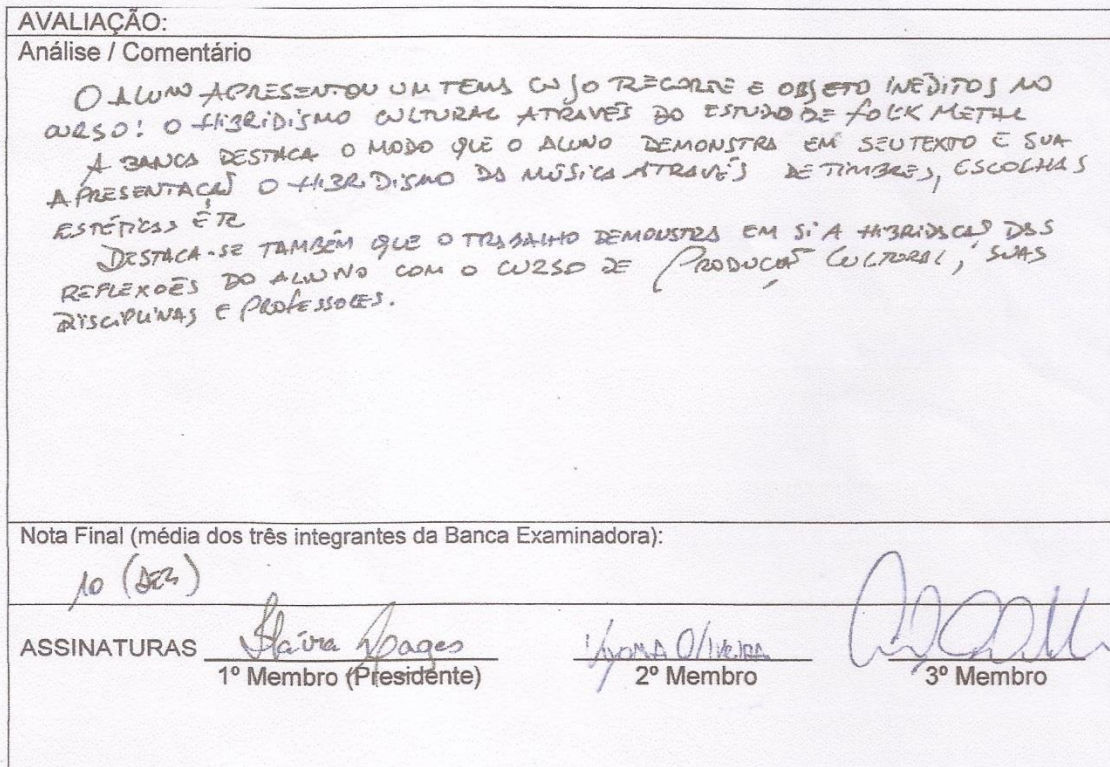 AVALIAÇÃO:
Análise / Comentário
O ALUNO APRESENTOU UM TEMA CUJO RECORTE E OBJETO INÉDITOS NO
CURSO: O HIBRIDISMO CULTURAL ATRAVÉS DO ESTUDO DE FOLK METAL
A BANCA DESTACA O MODO QUE O ALUNO DEMONSTRA EM SEU TEXTO E SUA
APRESENTAÇÃO O HIBRIDISMO DA MÚSICA ATRAVÉS DE TIMBRES, ESCOLHAS
ESTÉTICAS ETC
DESTACA-SE TAMBÉM QUE O TRABALHO DEMONSTRA EM SI A HIBRIDAÇÃO DAS
REFLEXÕES DO ALUNO COM O CURSO DE PRODUÇÃO CULTURAL, SUAS
DISCIPLINAS E PROFESSORES.
Nota Final (média dos três integrantes da Banca Examinadora):
10 (DEZ)
ASSINATURAS
OLIVEIRA
1º Membro (Presidente) 2º Membro 3º Membro